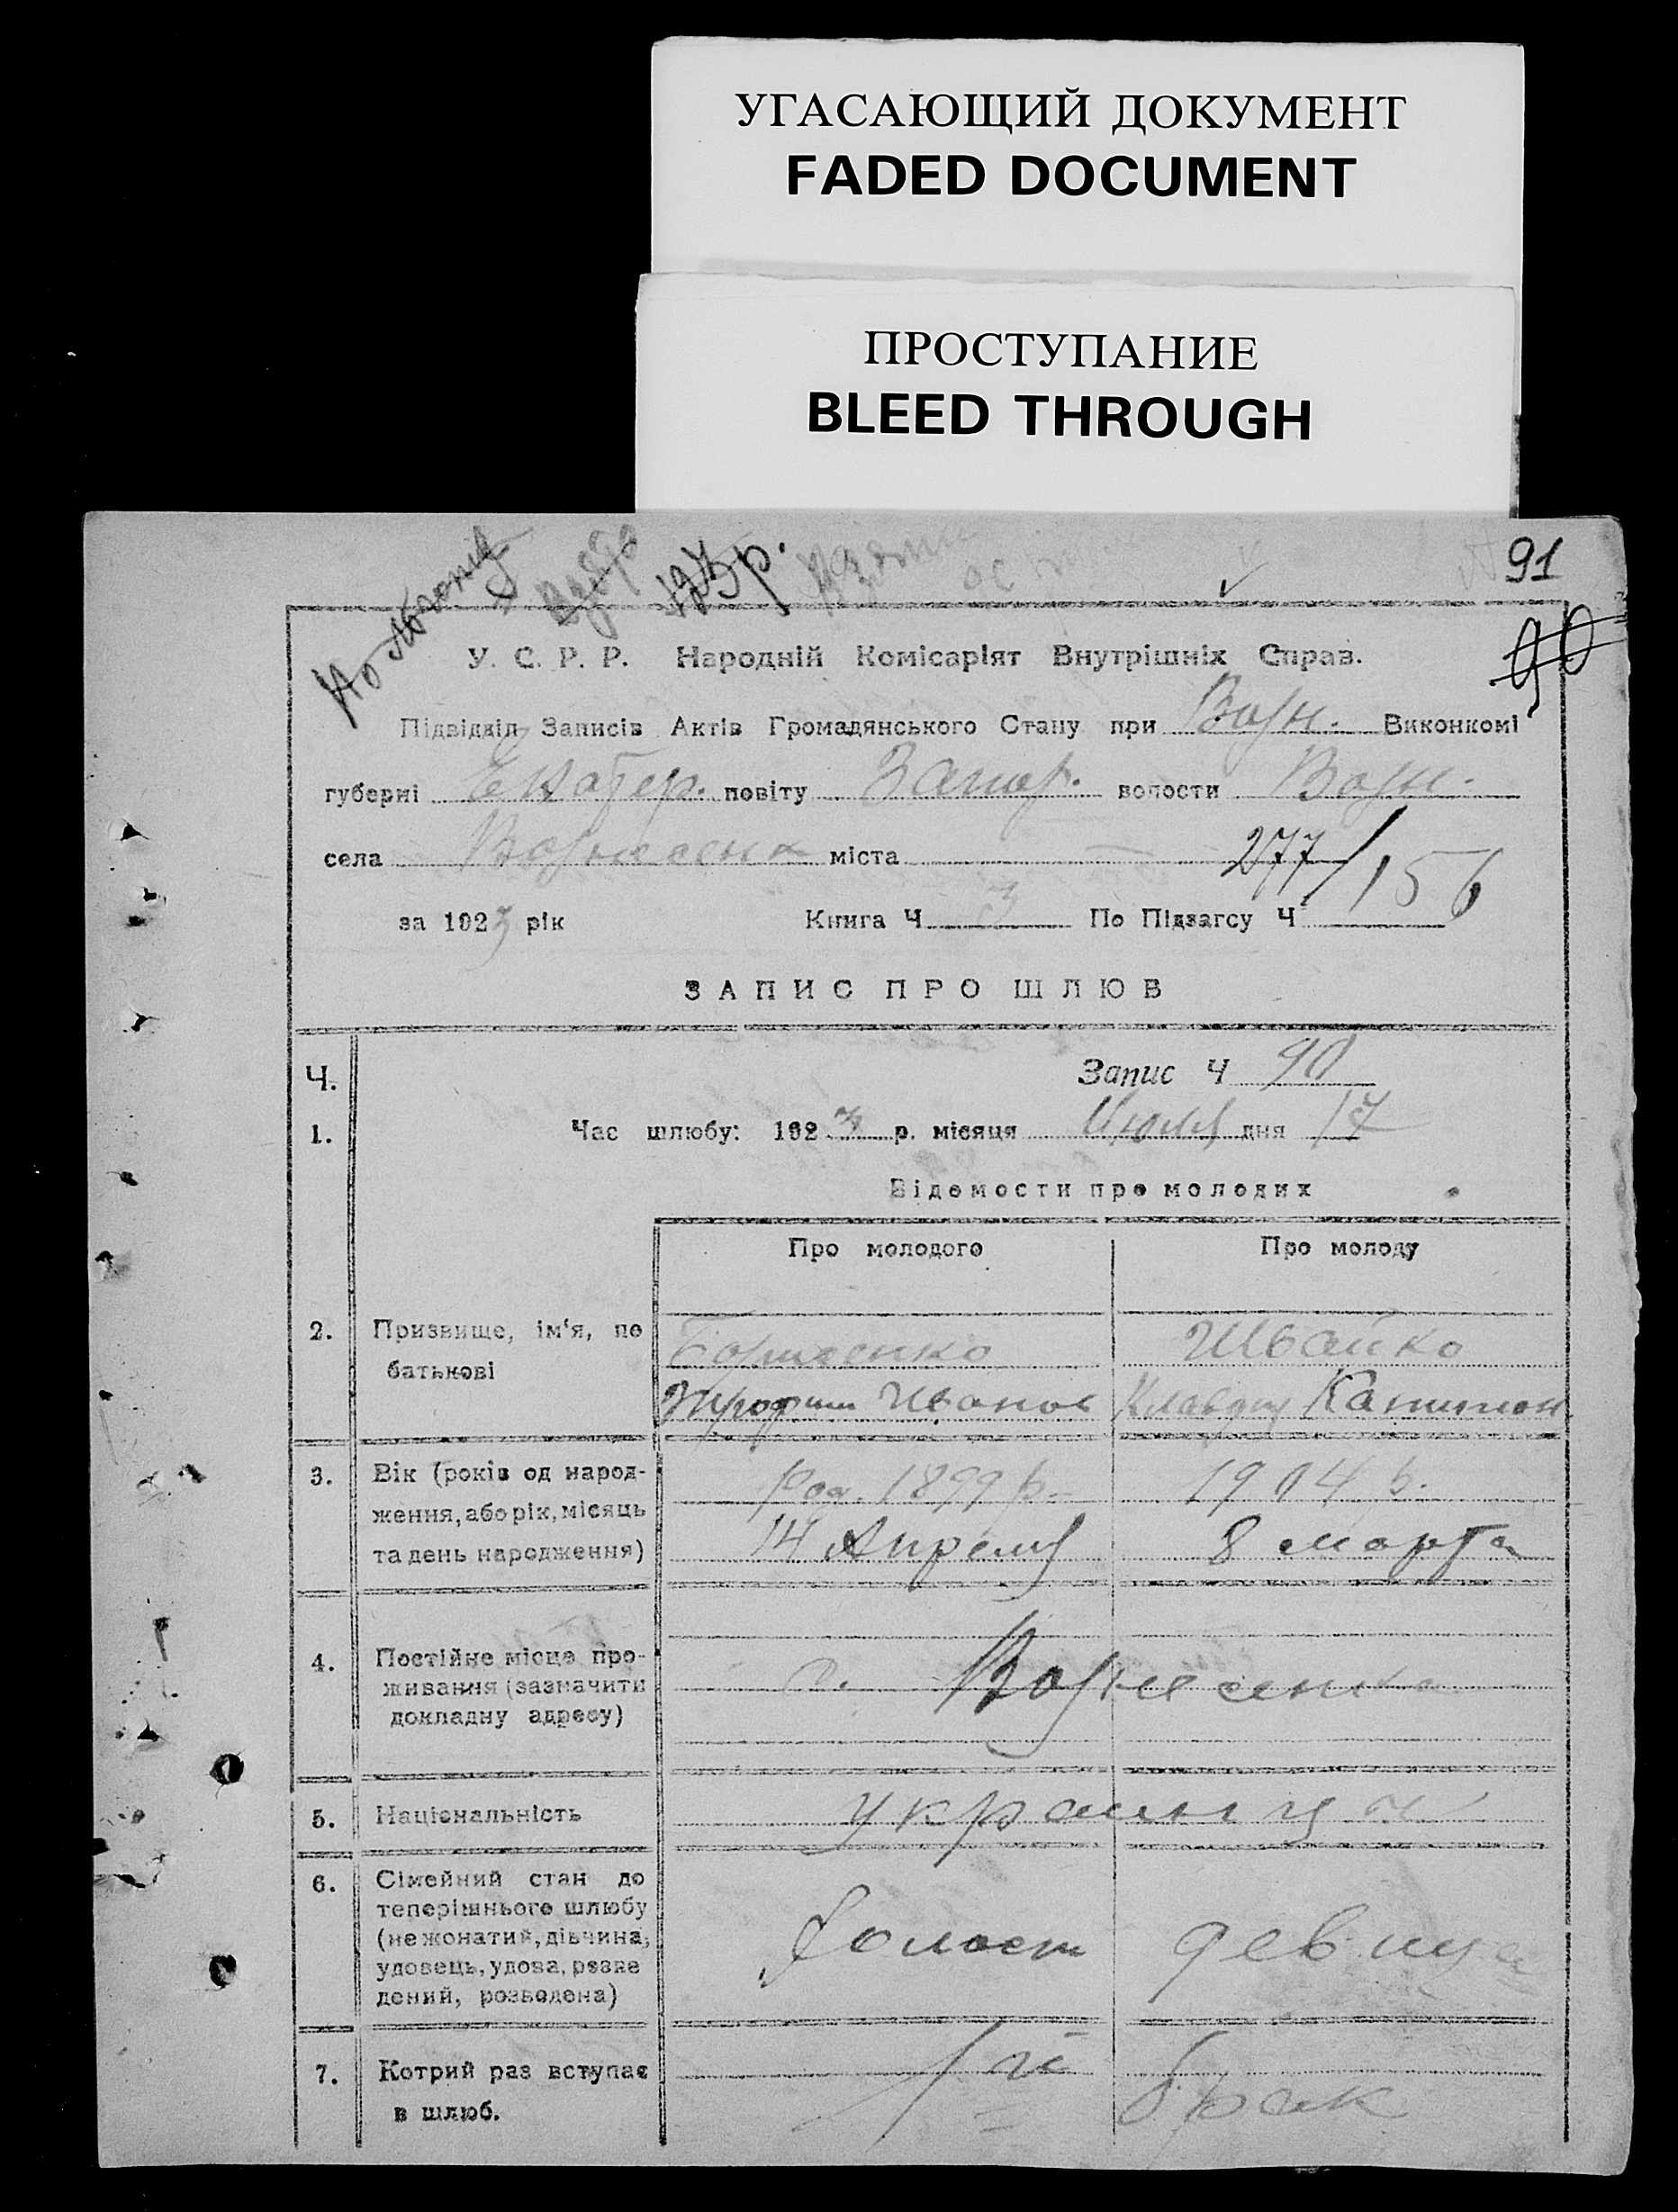 УГАСАЮЩИЙ ДОКУМЕНТ
FADED DOCUMENT
ПРОСТУПАНИЕ
BLEED THROUGH
91
90
У. С. Р. Р. Народній Комісаріят Внутрішніх Справ.
Підвідділ Записів Актів Громадянського Стану при Возн. Виконкомі
губерні Екатер. повіту Запор. волости Возн.
села Вознесенк міста — 277/156
за 1923 рік Книга Ч 3 По Підзагсу Ч
ЗАПИС ПРО ШЛЮБ
Ч. Запис Ч 90
1. Час шлюбу: 1923 р. місяця Июля дня 17
Відомости про молодих
Про молодого Про молоду
2. Призвище, ім'я, по батькові
Швайко
Иванов Клавдия
3. Вік (років од народ-
ження, або рік, місяць
та день народження)
Род. 1899 р. 1904 р.
14 Апреля 8 марта
4. Постійне місце про-
живання (зазначити
докладну адресу)
с. Вознесенка
5. Національність украинци
6. Сімейний стан до
теперішнього шлюбу
(не жонатий, дівчина,
удовець, удова, розве
дений, розведена)
Холост девица
7. Котрий раз вступає
в шлюб.
1й брак